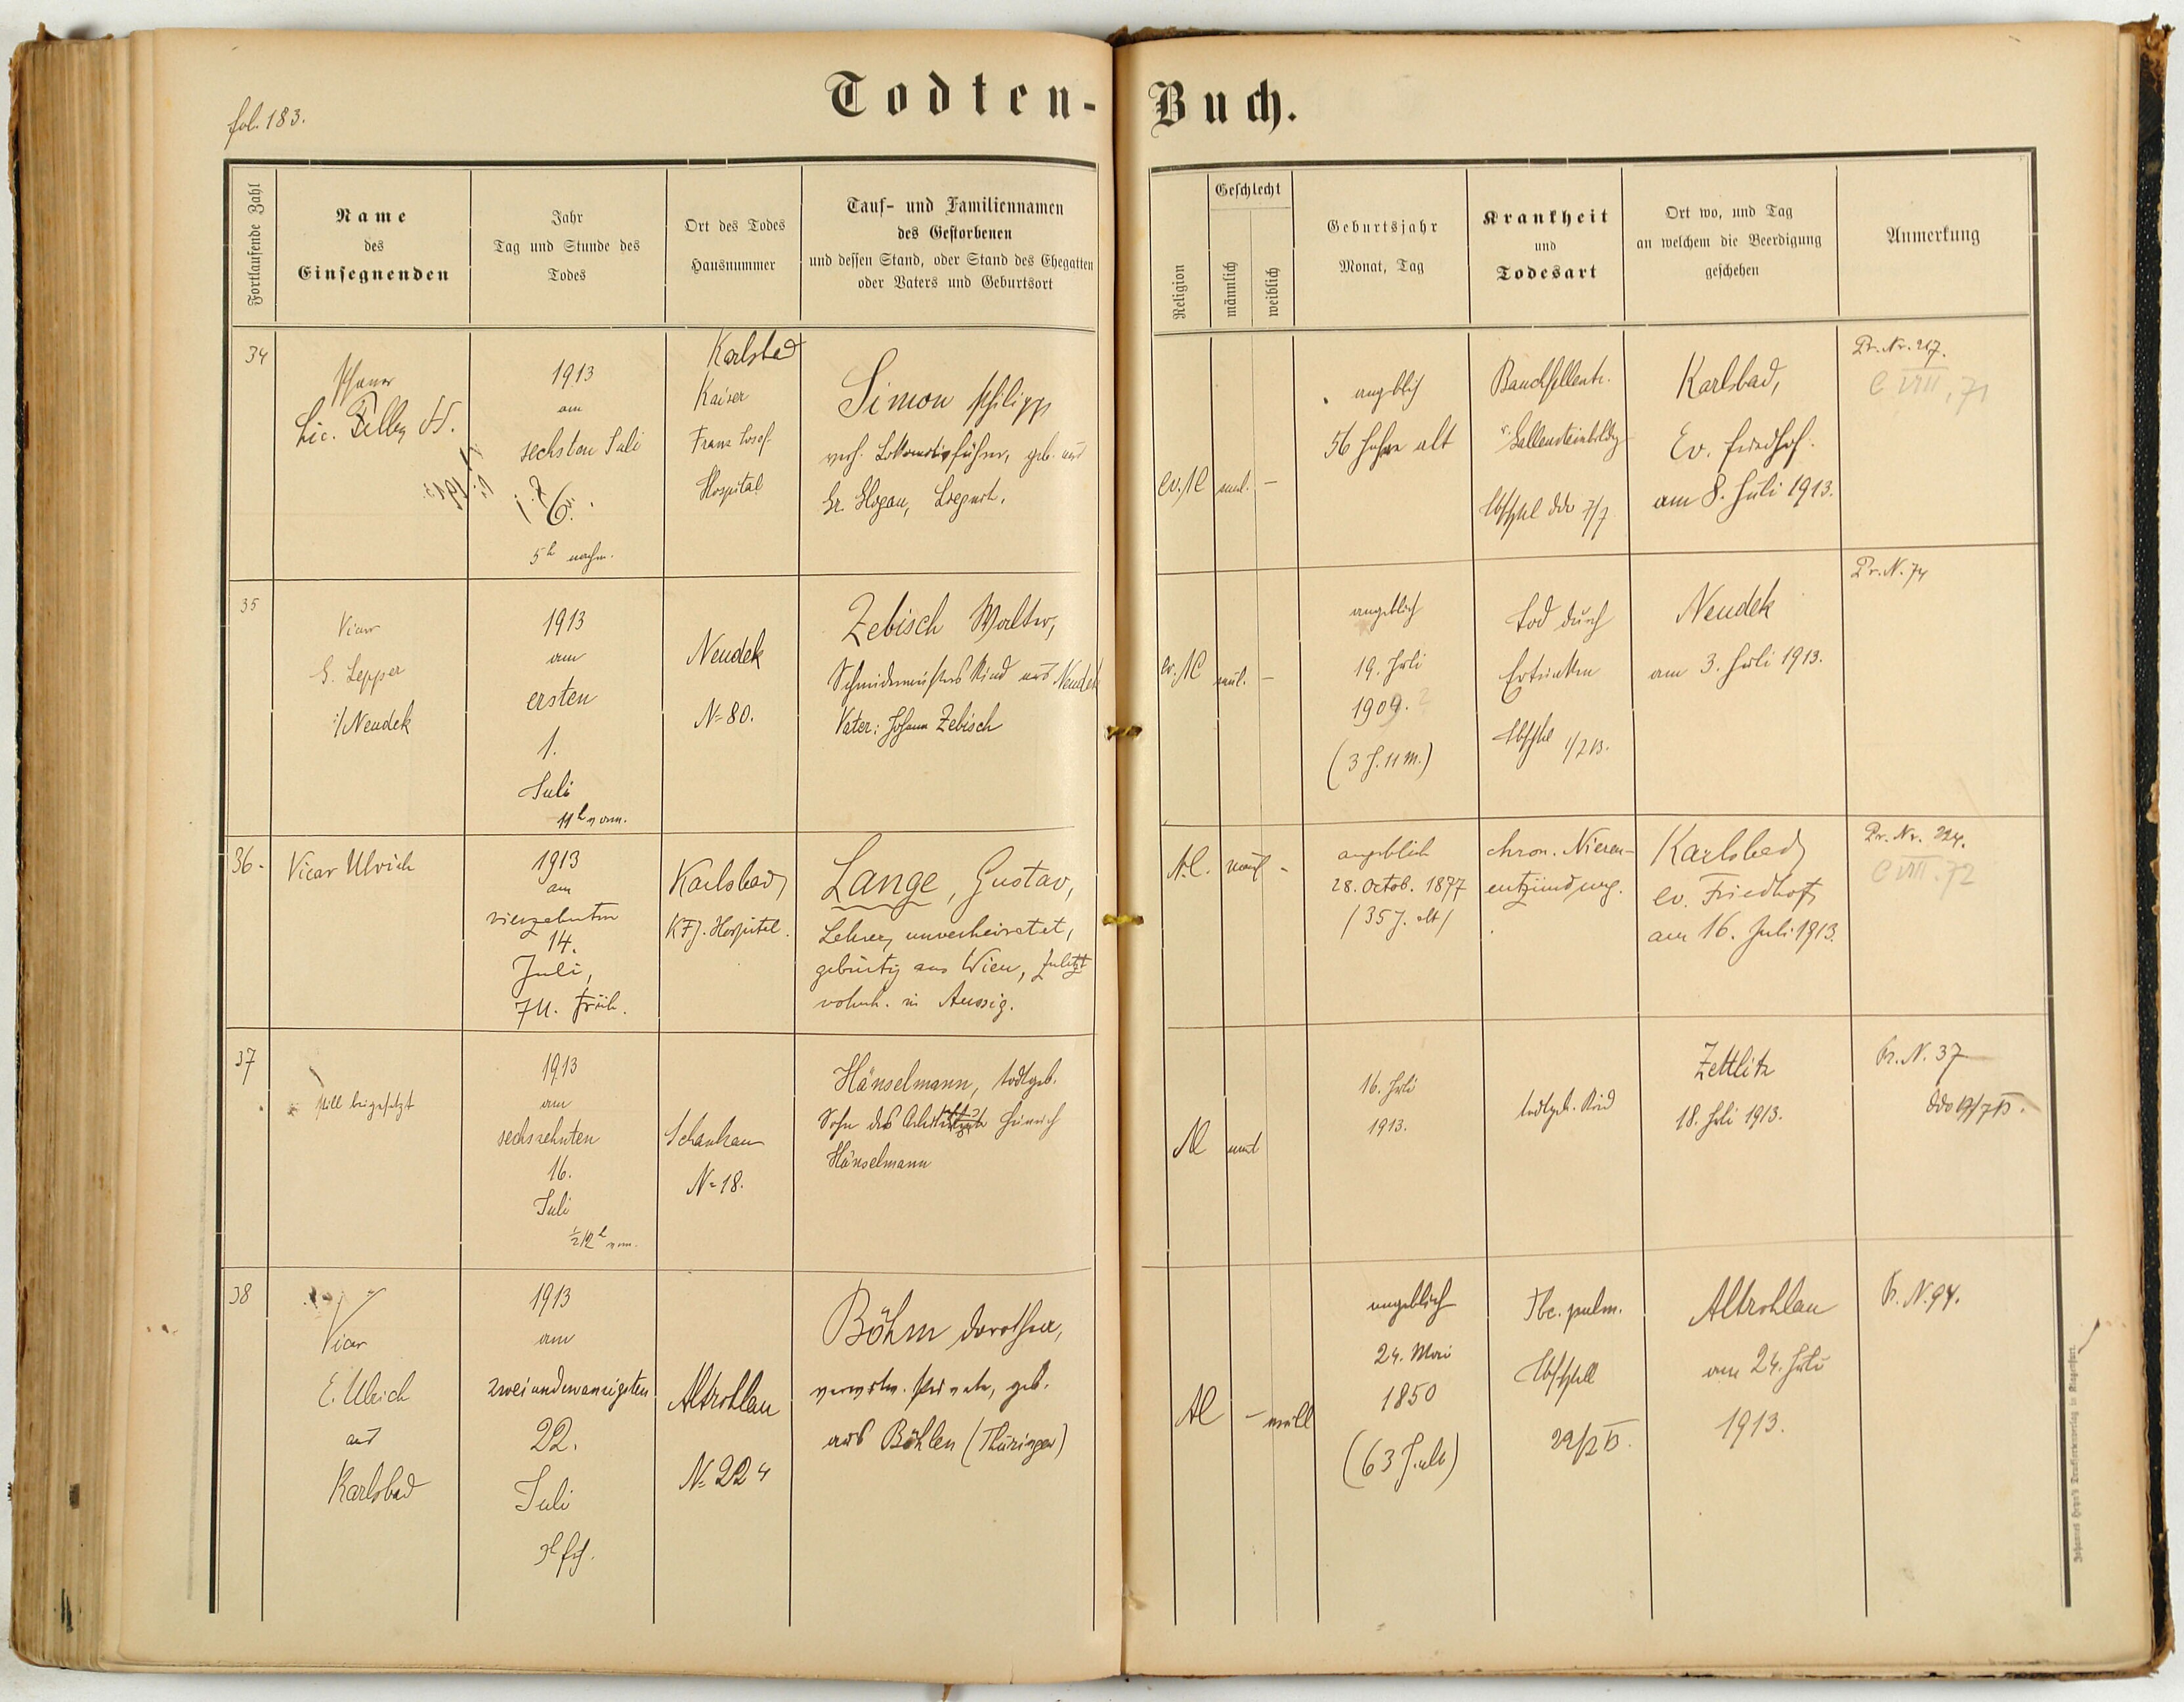 fol. 183.
Todten-Buch.
Fortlaufende Zahl
Name
des
Einsegnenden
Jahr
Tag und Stunde des
Todes
Ort des Todes
Hausnummer
Tauf- und Familiennamen
des Gestorbenen
und dessen Stand, oder Stand des Ehegatten
oder Vaters und Geburtsort
Religion
Geschlecht
männlich
weiblich
Geburtsjahr
Monat, Tag
Krankheit
und
Todesart
Ort wo, und Tag
an welchem die Beerdigung
geschehen
Anmerkung
34
Pfarrer
Lic.
1913
am
sechsten Juli
6.
5h nachm.
Karlsbad
Kaiser
Franz Josef
Hospital
Simon Philipp
verh. Lokomotivführer, geb. aus
Gr. Glogau,
ev. AC
männl.
–
angeblich
56 Jahre alt
Bauchfellentz.
Gallensteinbildg
ddo 7/7
Karlsbad,
Ev. Friedhof.
am 8. Juli 1913.
Pr. Nr. 217.
C VIII, 71
35
Vicar
G. Lepper
i/Neudek
1913
am
ersten
1.
Juli
11h vorm.
Neudek
No 80.
Zebisch Walter,
Schmidemeisters Kind aus Neudek
Vater: Johann Zebisch
ev. AC
männl.
–
angeblich
19. Juli
1909. ?
(3 J. 11 M.)
Tod durch
Ertrinken
Neudek
am 3. Juli 1913.
Pr. N. 74
36.
Vicar Ulrich
1913
am
vierzehnten
14.
Juli,
7 U. früh.
Karlsbad
KFJ. Hospital.
Lange, Gustav,
Lehrer, unverheiratet,
gebürtig aus Wien, zuletzt
wohnh. in Aussig.
A.C.
männl
-
angeblich
28. Octob. 1877
/35 J. alt/
chron. Nieren-
entzündung.
Karlsbad
ev. Friedhof
am 16. Juli 1913.
Pr. Nr. 224.
C VIII. 72
37
still beigesetzt
1913
am
sechszehnten
16.
Juli
1/2 12h vorm.
Schankau
No 18.
Hänselmann, todtgeb.
Sohn des Heinrich
Hänselmann
AC
männl
16. Juli
1913.
todtgeb. Kind
Zettlitz
18. Juli 1913.
Pr. N. 37
ddo 17/7 13.
38
Vicar
E. Ulrich
aus
Karlsbad
1913
am
zweiundzwanzigsten
22.
Juli
3h fr.
Altrohlau
No 224
Böhm Dorothea,
verwitw. Private, geb.
aus Böhlen (Thüringen)
AC
–
weibl
angeblich
24. Mai
1850
(63 J. alt)
Tbc. pulm.
Altrohlau
am 24. Juli
1913.
Pr. N. 94.
Johannes Heyn's Druckereiverlag in Klagenfurt.